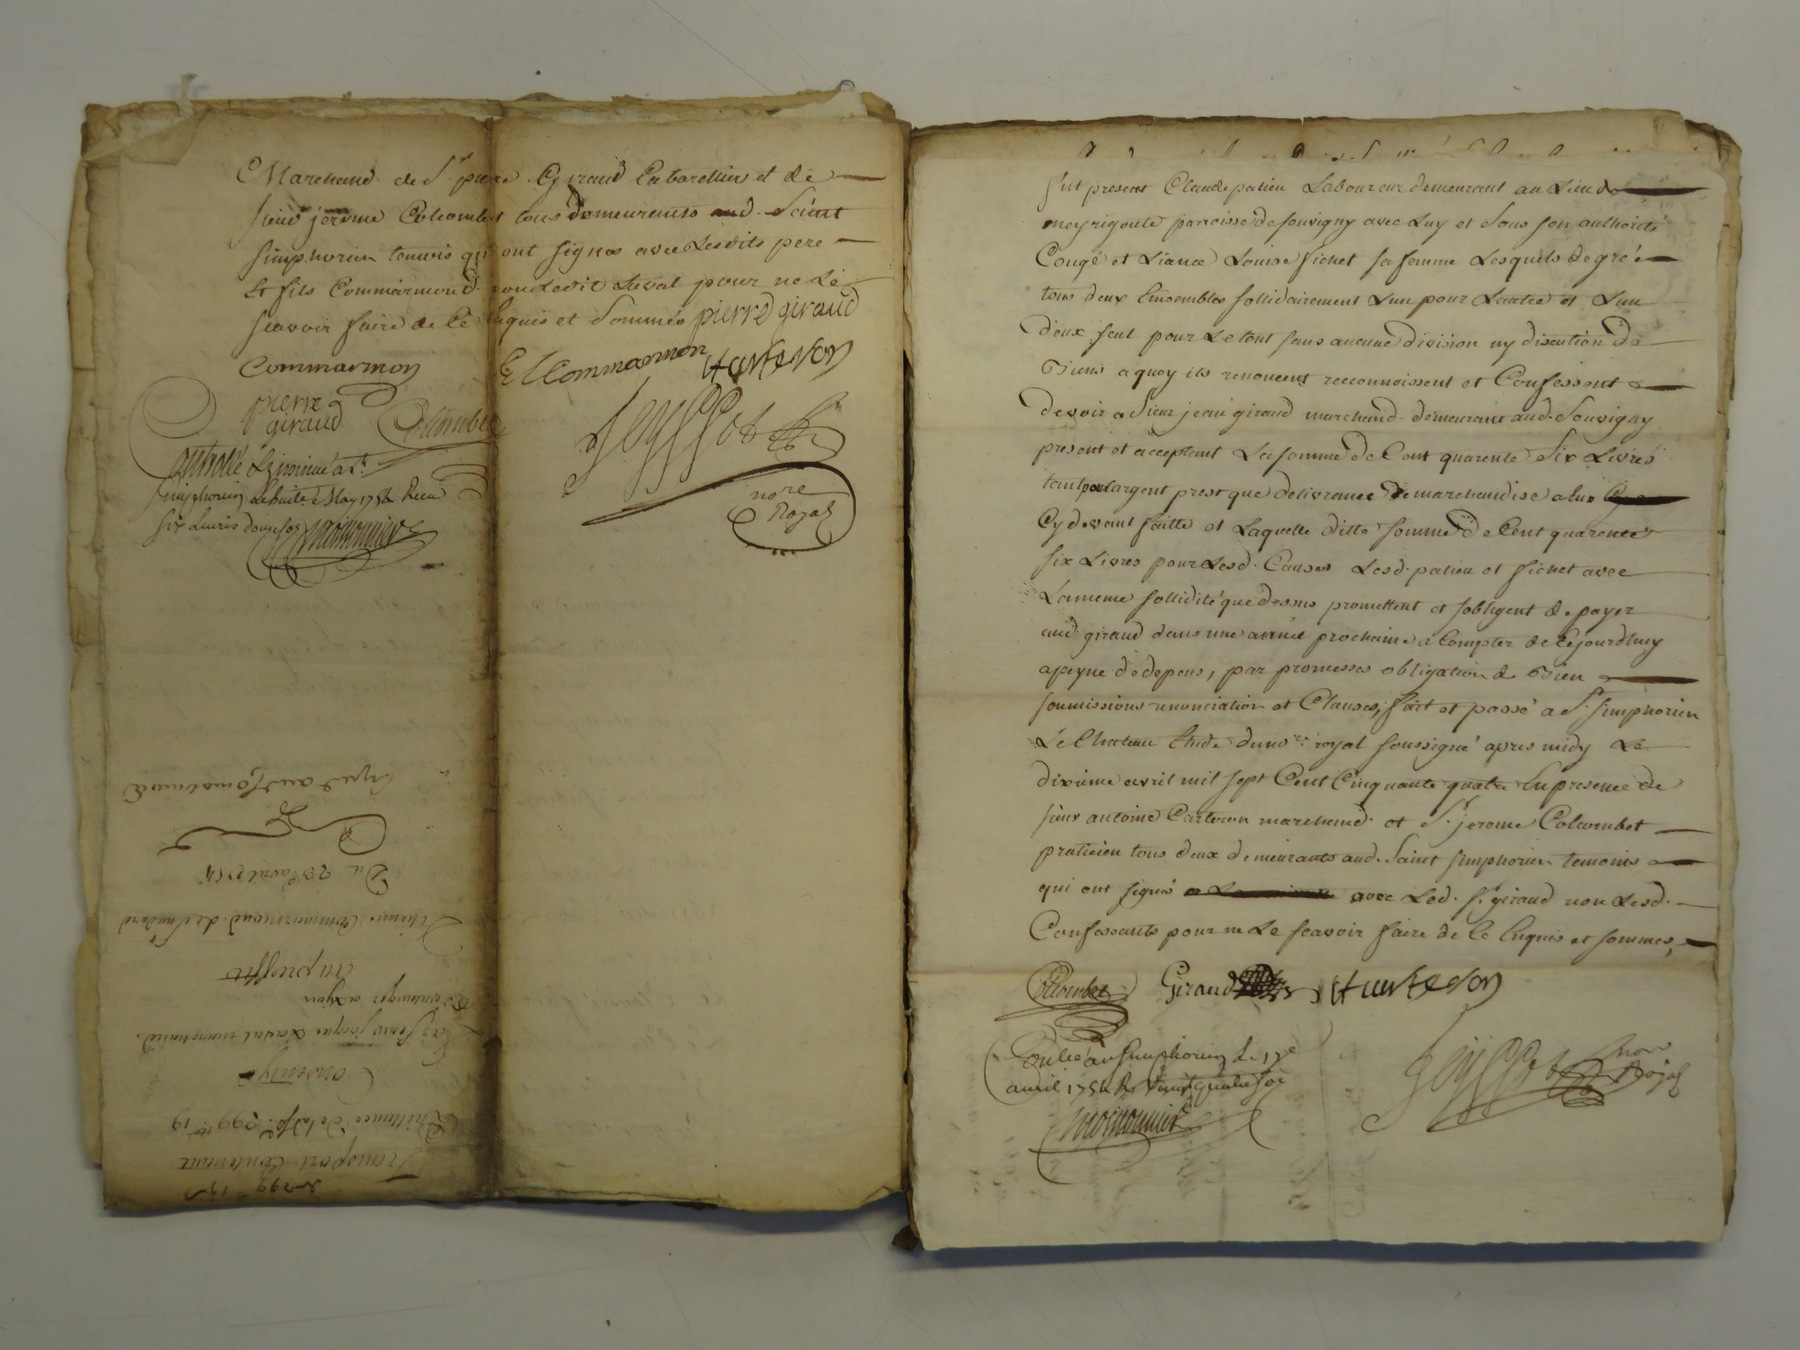 Marchand de Sr. pierre Giraud Cabarettier et de
sieur jerome Colcombet tous demeurants aud. Saint
simphorien temoins qui ont signes avec Lesdits pere
et fils Commarmond non Ledit Laval pour ne Le
scavoir faire de Ce Enquis et Sommés pierre giraud
Commarmon E Commarmon Carteron
pierre
giraud Colcombet
Jeyssot
nore
Royal
Controllé & insinué a St.
simphorien Le huit e May 1754 Receu
six Livres douze sols
Moinonnier
Du 23e avril 1754
Etienne Commarmond de
Boulanger a Lyon
Le sieur jacque Laval marchand.
Consenty
Quittance de la so. 299 ll 19
Transport Contenant
299 ll 19 s
fut present Claude patieu Laboureur demeurant au Lieu de
meyrigoute parroisse de souvigny avec Luy et sous son authorité
Congé et Liance Louise fichet sa femme Lesquels de gré
tous deux Ensembles sollidairement L'un pour L'autre et L'un
d'eux seul pour Le tout sans aucune division ny discution de
Biens a quoy ils renoncent reconnoissent et Confessent
devoir a sieur jean giraud marchand demeurant aud. Souvigny
present et acceptant La somme de Cent quarente Six Livres
tant pour argent prest que delivrance de marchandise a Eux
Cy devant faitte et Laquelle ditte somme de Cent quarente
six Livres pour Lesd. Causes Lesd. patieu et fichet avec
La meme sollidité que dessus promettent et s'obligent de payer
aud giraud dans une année prochaine a Compter de Cejourdhuy
a peyne de depens, par promesses obligation de Bien
soumissions renonciation et Clauses, fait et passé a St. simphorien
Le Chateau Etude du no.re royal soussigné apres midy Le
dixieme avril mil sept Cent Cinquante quatre En presence de
sieur antoine Carteron marchand et Sr. jerome Colcombet
praticien tous deux demeurants aud. Saint simphorien temoins
qui ont signé avec Led. Sr. giraud non Lesd.
Confessants pour ne Le scavoir faire de Ce Enquis et sommes,
Colcombet Giraud Carteron
Con.lé a St Simphorien Le 17e
avril 1754 Rx Vint quatre sols
Moinonnier
Jeyssot nore
Royal